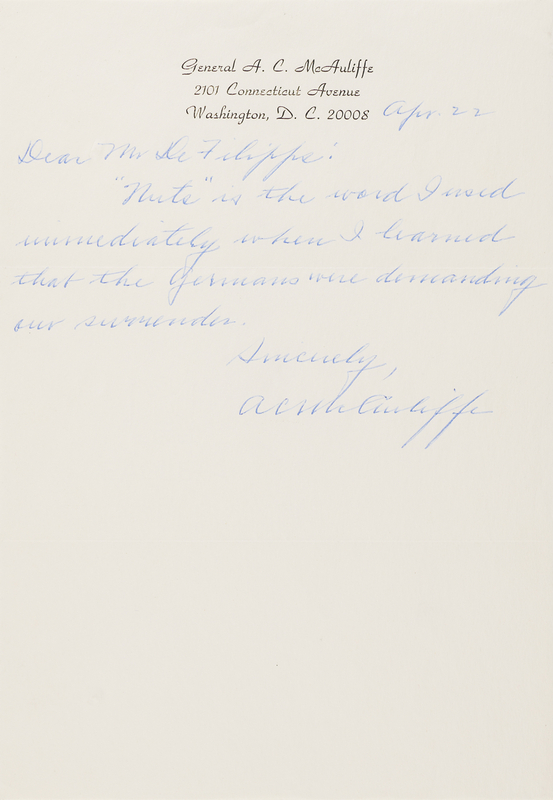 General A. C. McAuliffe
2101 Connecticut Avenue
Washington, D. C. 20008 Apr. 22
Dear Mr De Filipps:
"Nuts" is the word I used
immediately when I learned
that the Germans were demanding
our surrender.
Sincerely,
A C McAuliffe